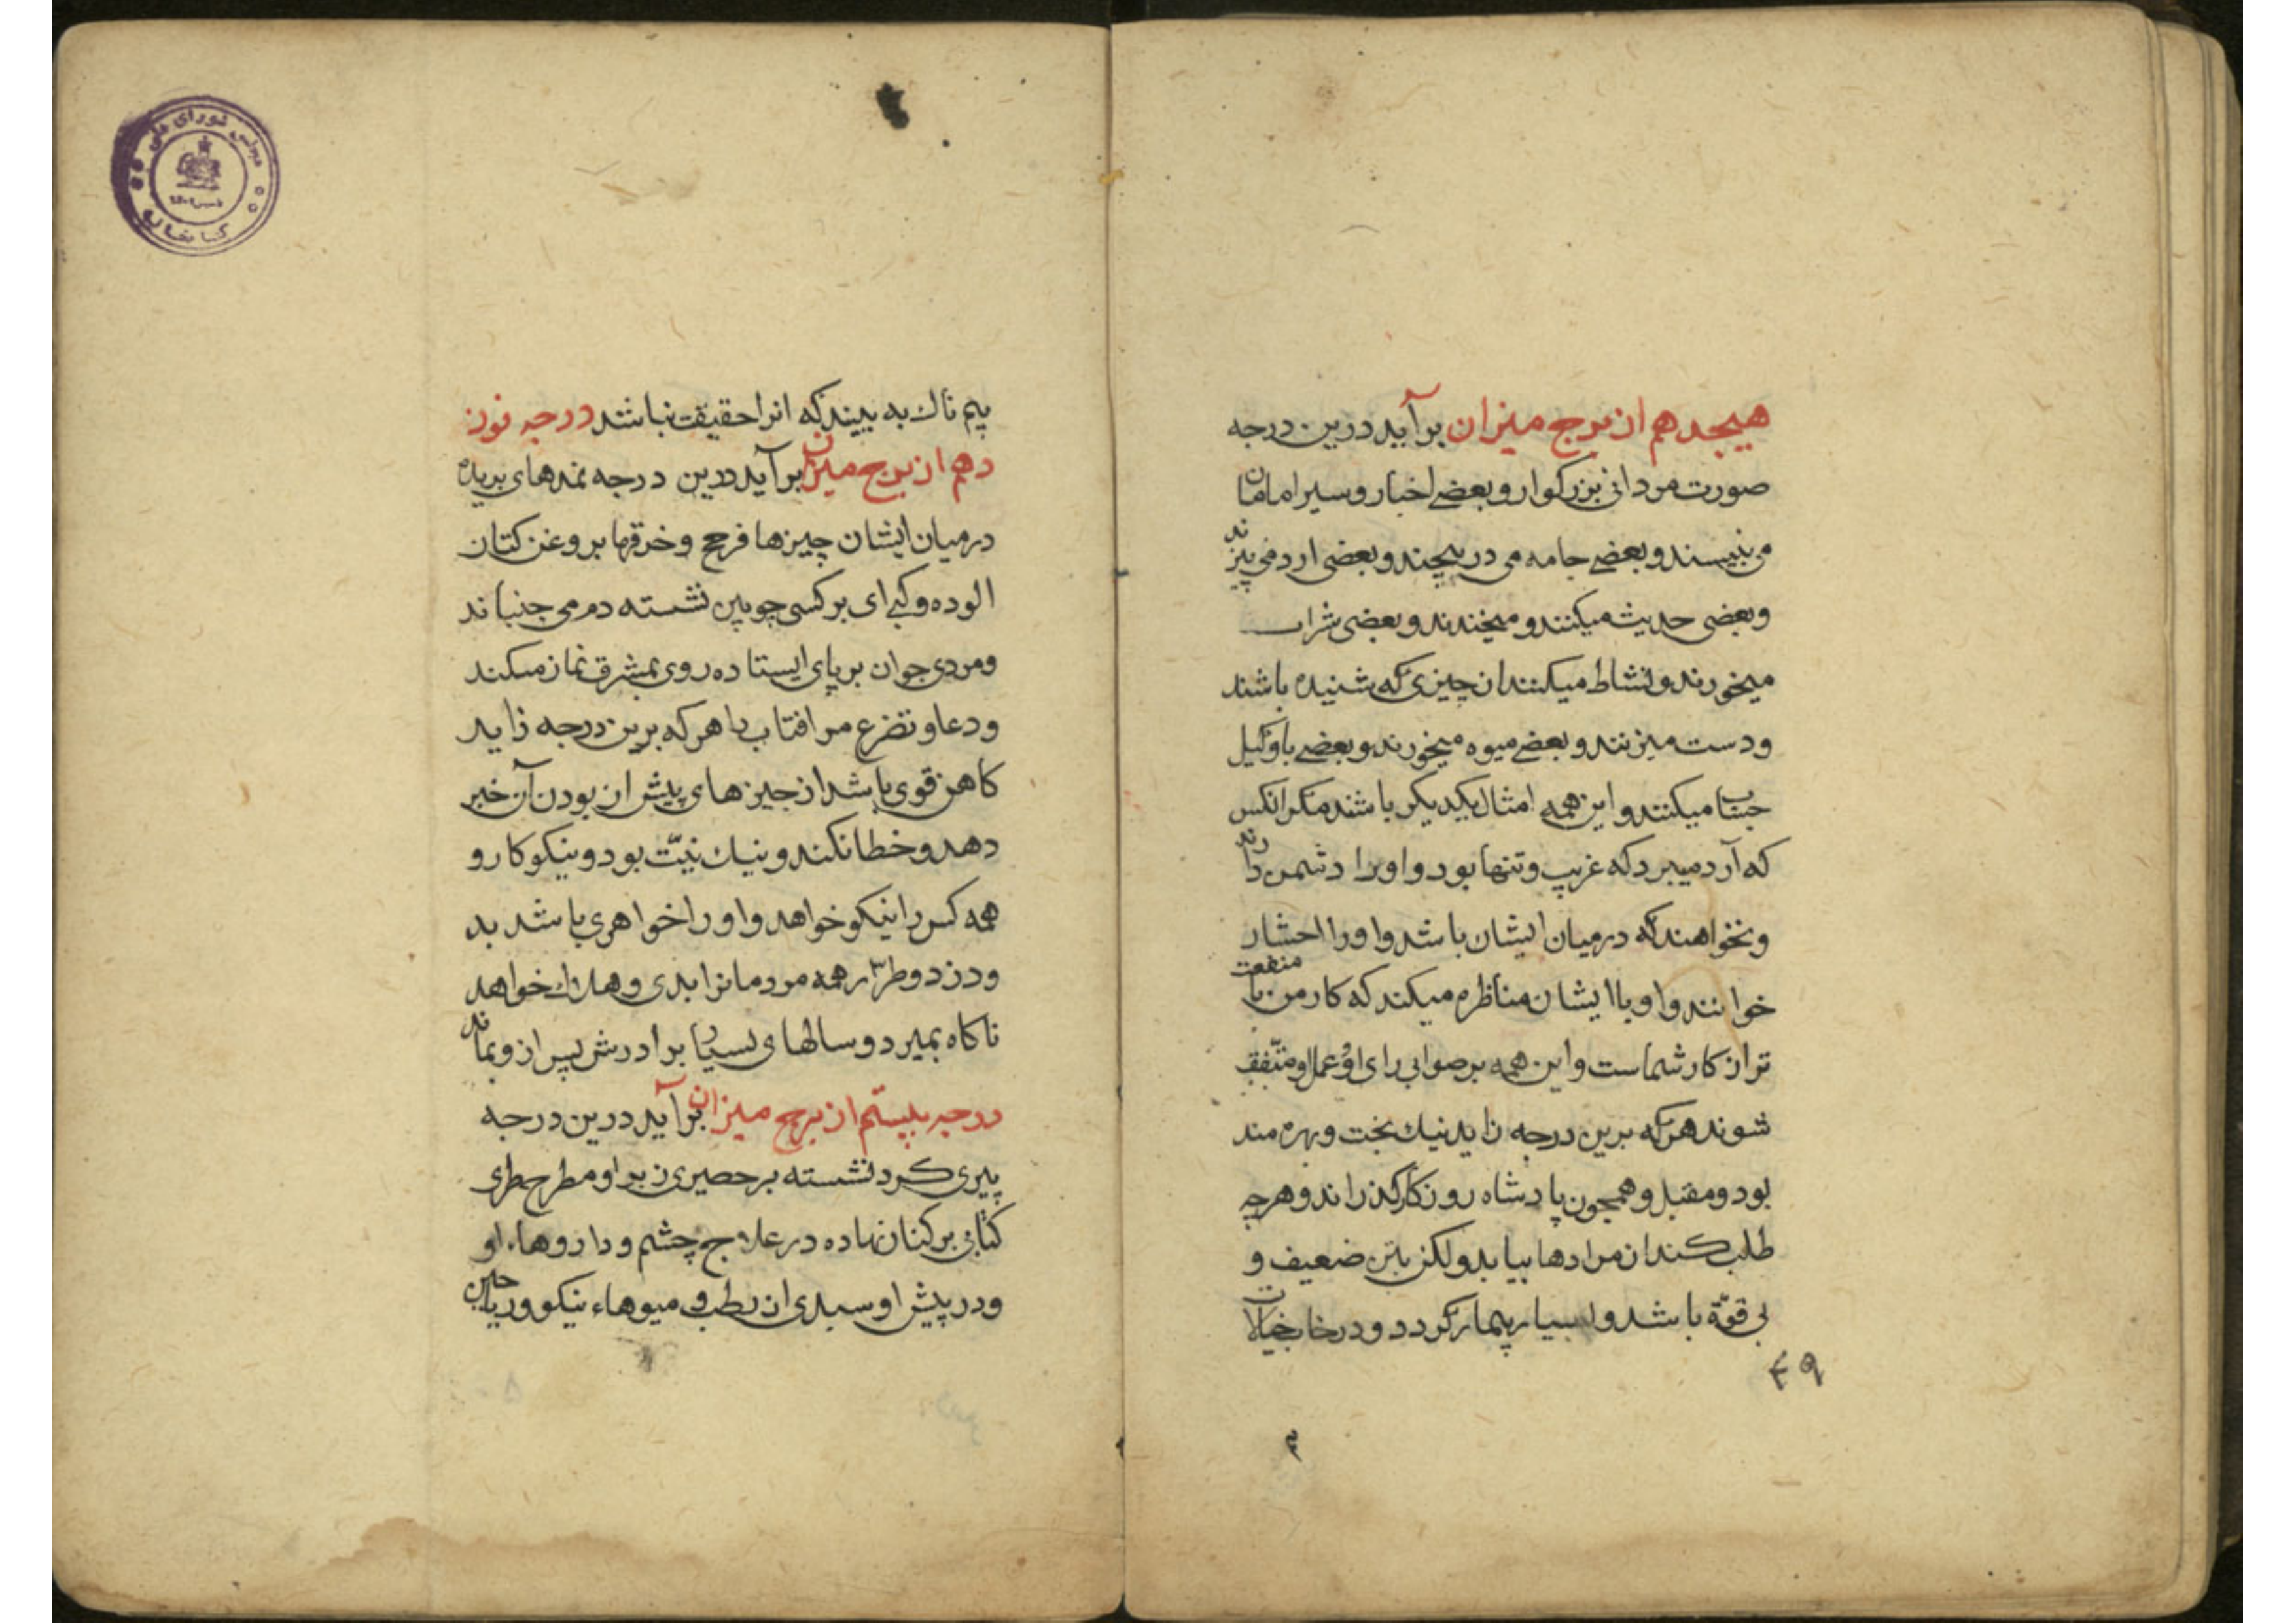 هیجدهم از برج میزان برآید درین درجه
صورت مردانی بزرکوار و بعضے اخبار و سیر امامان
می نبیسند و بعضے جامه می در پیچند و بعضی ارد می پزند
و بعضی حدیث میکنند و میخندند و بعضی شراب
میخورند و نشاط میکنند از چیزی که شنیده باشند
و دست میزنند و بعضے میوه میخورند و بعضے با وکیل
حساب میکنند و این همه امثال یکدیکر باشند مکر انکس
که آرد میبرد که غریب و تنها بود و او را دشمن دارند
و نخواهند که درمیان ایشان باشد و او را احشار
خوانند و او با ایشان مناظره میکند که کار من با منفعت
تر از کار شماست و این همه بر صوابی رای او و عمل او متّفق
شوند هرکه برین درجه زاید نیك بخت و بهره مند
بود و مقبل و همچون پادشاه روزکار کذراند و هرچه
طلب کند از مرادها بیابد ولکن بتن ضعیف و
بی قوّة باشد و بسیار بیمار کردد و در خیالات
۴۹
پیم ناك به بیند که انرا حقیقت نباشد درجه نوز
دهم از برج میزان برآید درین درجه نمدهای بریده
درمیان ایشان چیزها فرخج و خرقها بروغن کتان
الوده و کپی ای بر کسی چوبین نشسته دم می جنباند
و مردی جوان بر پای ایستاده روی بمشرق نماز میکند
و دعا و تضرع مر افتاب را هرکه برین درجه زاید
کاهن قوی باشد از جیزهای پیش از بودن آن خبر
دهد و خطا نکند و نیك نیّت بود و نیکوکار و
همه کس را نیکو خواهد و او را خواهری باشد بد
و دزد و طرّار همه مردمانرا بدی و هلاك خواهد
ناکاه بمیرد و سالهای بسیار برادرش پس از و بماند
درجه بیستم از برج میزان برآید درین درجه
پیری کرد نشسته بر حصیری زبر او مطرح مطری
کتابی بر کنار نهاده در علاج چشم و داروهاء او
و در پیش او سبدی از رطب و میوهاء نیکو و ریاحین
مجلس شورای ملی
کتابخانه